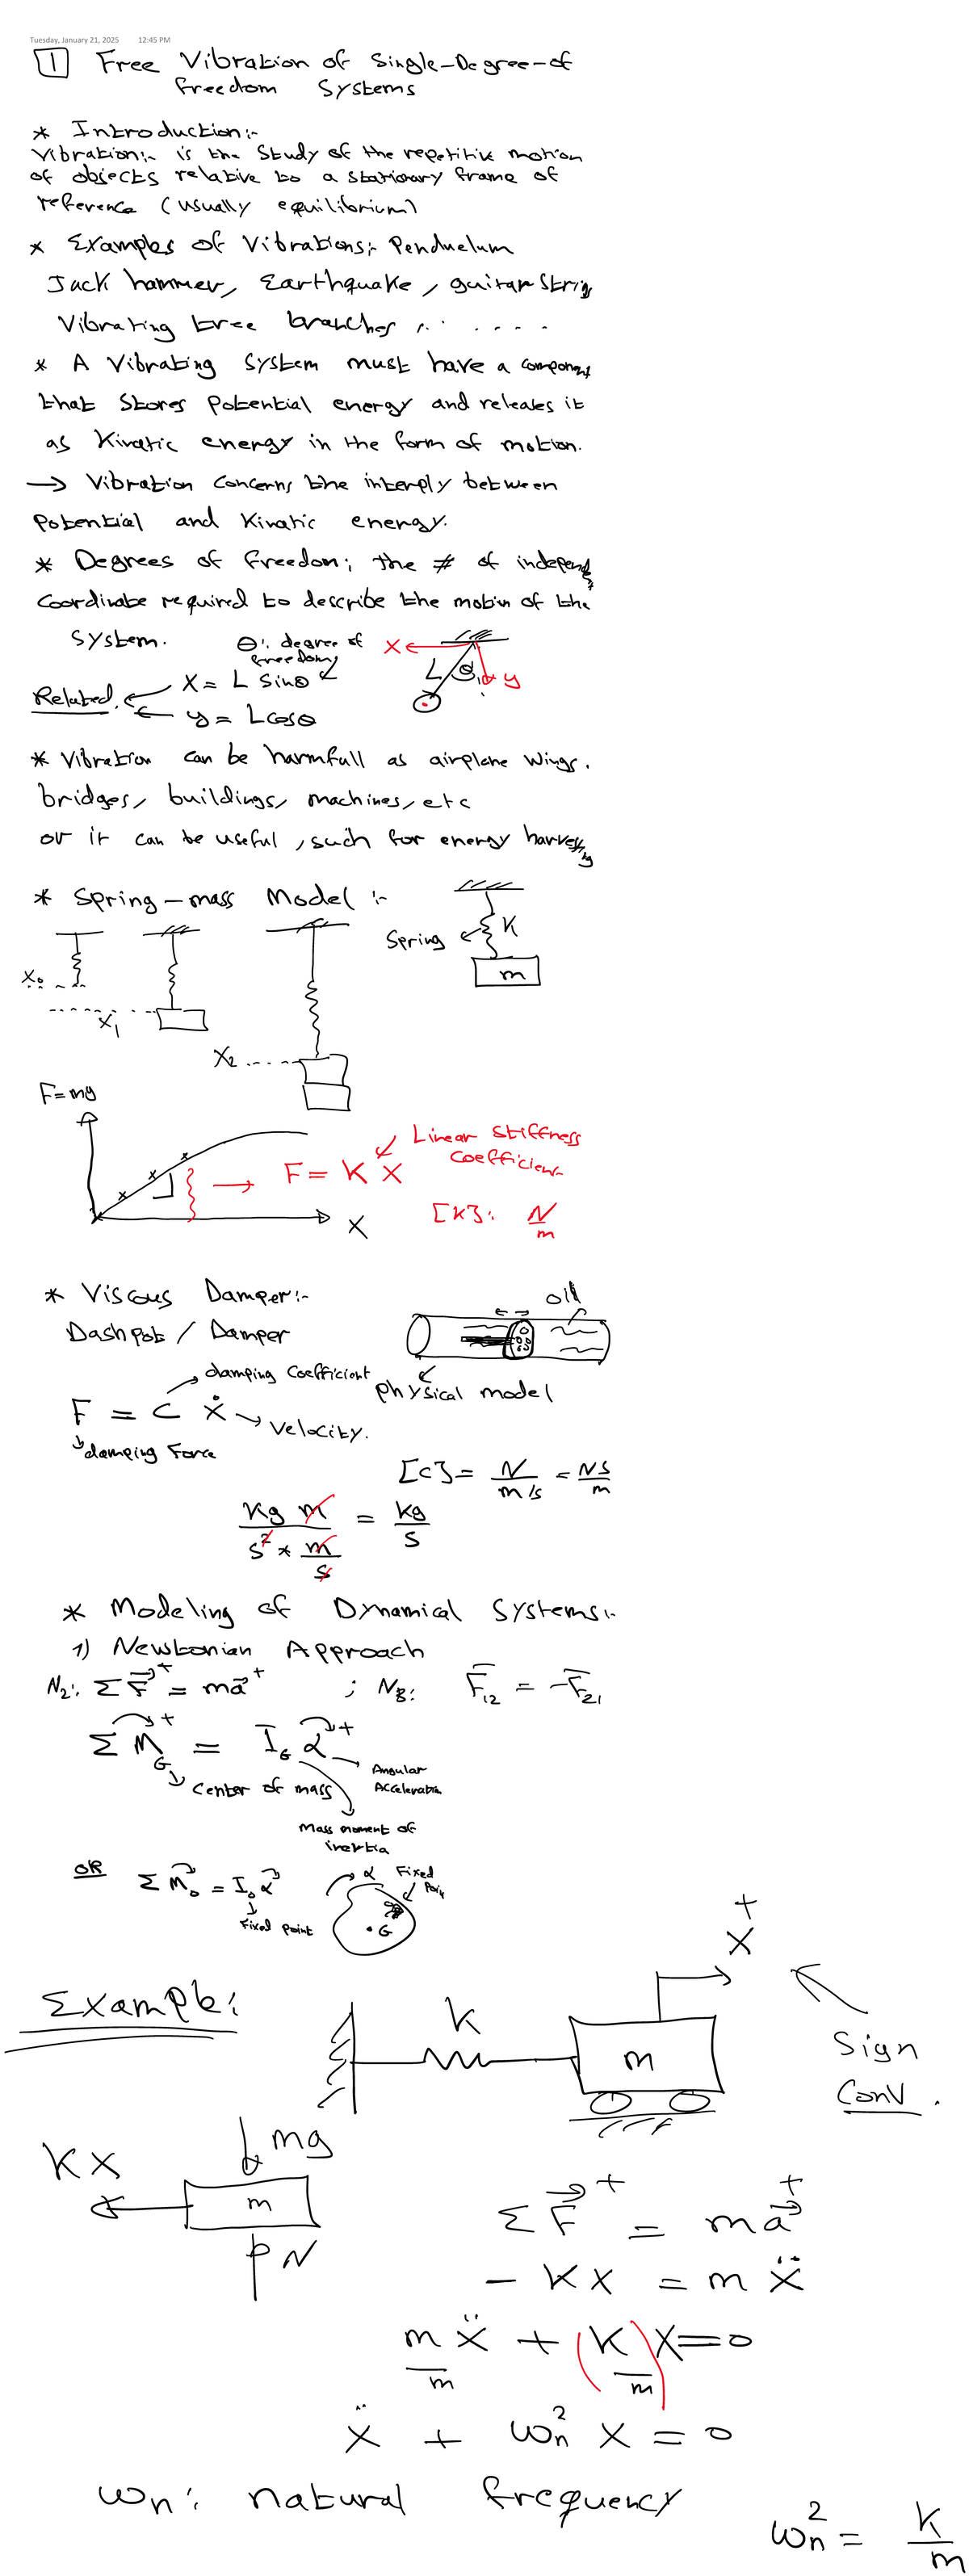 Tuesday, January 21, 2025 12:45 PM
1 Free Vibration of Single-Degree-of
freedom Systems
* Introduction:-
Vibration:- is the Study of the repetitive motion
of objects relative to a stationary frame of
reference (usually equilibrium)
* Examples of Vibrations:- Penduelum
Jack hammer, Earthquake, guitar String
Vibrating tree branches, . . . . . .
* A Vibrating System must have a component
that Stores Potential energy and releases it
as Kinatic energy in the form of motion.
→ Vibration Concerns the interply between
Potential and Kinatic energy.
* Degrees of freedom: the # of independent
Coordinate required to describe the motion of the
System.
θ: degree of
freedom
X
L
θ
y
Related.
X = L sinθ
y = L cosθ
* Vibration can be harmfull as airplane wings,
bridges, buildings, machines, etc
or it can be useful, such for energy harvesting
* Spring-mass Model:-
Spring
K
m
X₀
X₁
X₂
F=mg
F = K X
Linear Stiffness
Coefficient
X
[K]: N/m
* Viscous Damper:-
Dashpot / Damper
oil
damping Coefficient
physical model
F = C ẋ → Velocity.
damping Force
[C] = N/(m/s) = NS/m
Kg m / (s² * m/s) = kg/s
* Modeling of Dynamical Systems:-
1) Newtonian Approach
N₂: Σ F⃗⁺ = m a⃗⁺ ; N₃: F̄₁₂ = -F̄₂₁
Σ M_G⁺ = I_G α⁺
Center of mass
Angular
Acceleration
Mass moment of
inertia
OR
Σ M₀ = I₀ α
Fixed Point
α
Fixed
Point
G
Example:
K
m
+
X
Sign
Conv.
K X
mg
m
N
Σ F⃗⁺ = m a⃗⁺
- K X = m ẍ
m ẍ/m + (K/m) X = 0
ẍ + ωn² X = 0
ωn: natural frequency
ωn² = K/m